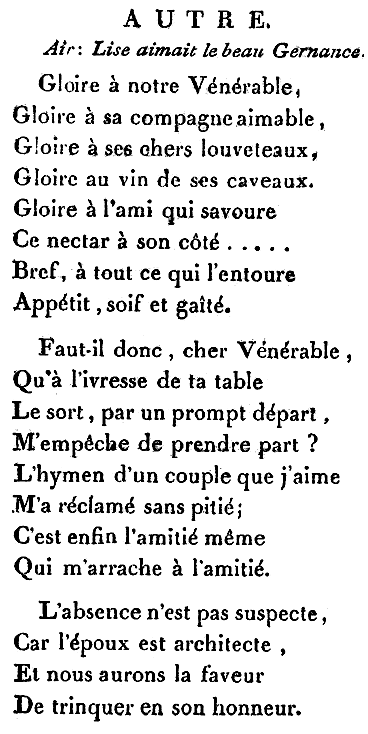 AUTRE.
Air: Lise aimait le beau Gernance.
Gloire à notre Vénérable,
Gloire à sa compagne aimable,
Gloire à ses chers louveteaux,
Gloire au vin de ses caveaux.
Gloire à l'ami qui savoure
Ce nectar à son côté .....
Bref, à tout ce qui l'entoure
Appétit, soif et gaîté.
Faut-il donc, cher Vénérable,
Qu'à l'ivresse de ta table
Le sort, par un prompt départ,
M'empêche de prendre part ?
L'hymen d'un couple que j'aime
M'a réclamé sans pitié;
C'est enfin l'amitié même
Qui m'arrache à l'amitié.
L'absence n'est pas suspecte,
Car l'époux est architecte,
Et nous aurons la faveur
De trinquer en son honneur.